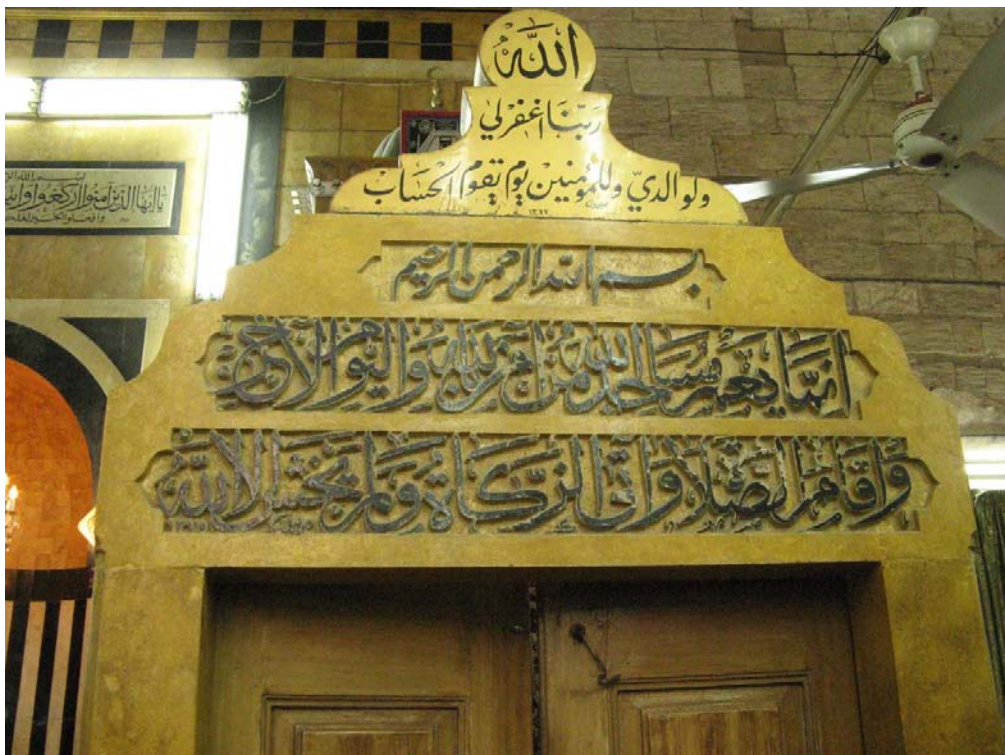 الله
ربنا اغفر لي
ولوالدي وللمؤمنين يوم يقوم الحساب
١٣٧٧
بسم الله الرحمن الرحيم
انما يعمر مساجد الله من آمن بالله واليوم الآخر
واقام الصلاة وآتى الزكاة ولم يخش الا الله
يا ايها الذين آمنوا اركعوا